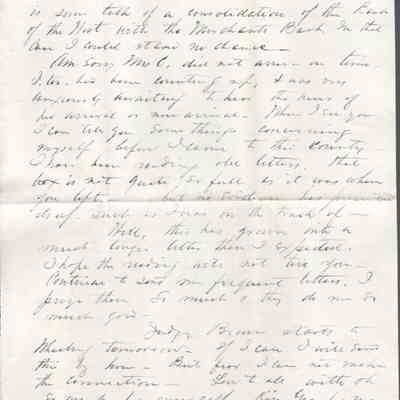 is some talk of a consolidation of the Bank
of the West with the Merchants Bank. In that
case I would stand no chance —
Am sorry Mr C. did not arrive on time
I have been counting up, & was very
anxiously awaiting to hear the news of
his arrival or non arrival — When I see you
I can tell you some things concerning
myself before I came to this country —
I have been reading old letters, that
box is not quite so full as it was when
you left — but no
deal such as I was on the track of —
Well, this has grown into a
much longer letter than I expected.
I hope the reading will not tire you —
Continue to send me frequent letters. I
prize them so much & they do me so
much good —
Judge Brown starts to
Wheeling tomorrow — If I can I will send
this by him — But fear I can not make
the connection —